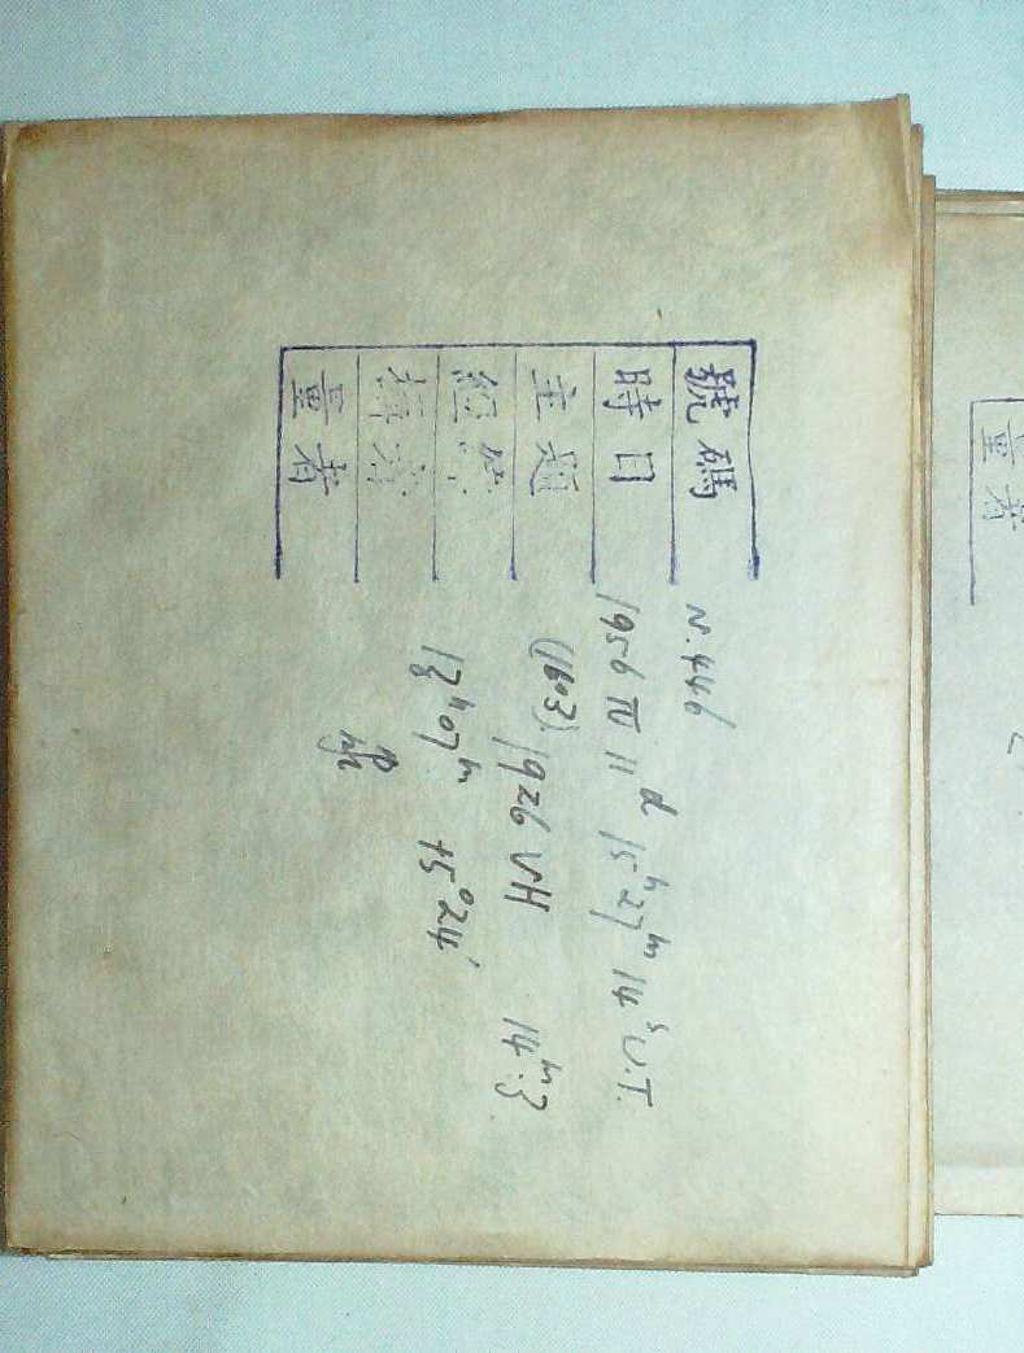 號碼 N.446
時日 1956 IV 11ᵈ 15ʰ27ᵐ14ˢ U.T.
主題 (1603) 1926 VH 14ᵐ.3
經緯 13ʰ07ᵐ +5°24′
量者
量者